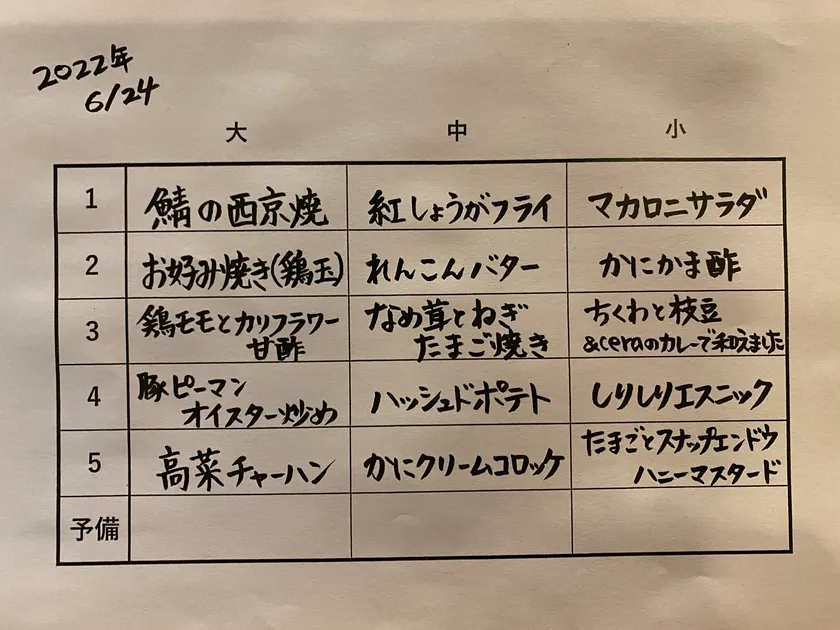 2022年
6/24
大 中 小
1 鯖の西京焼 紅しょうがフライ マカロニサラダ
2 お好み焼き(鶏玉) れんこんバター かにかま酢
3 鶏モモとカリフラワー
甘酢 なめ茸とねぎ
たまご焼き ちくわと枝豆
&ceraのカレーで和えました
4 豚ピーマン
オイスター炒め ハッシュドポテト しりしりエスニック
5 高菜チャーハン かにクリームコロッケ たまごとスナップエンドウ
ハニーマスタード
予備